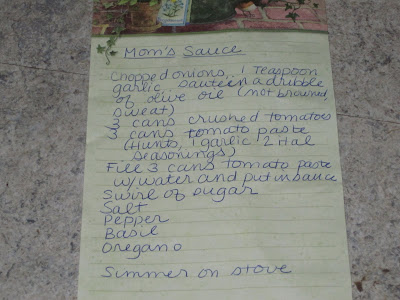 Mom's Sauce
Chopped onions, 1 Teaspoon
garlic, sauteé in a dribble
of olive oil (not browned,
sweat)
3 cans crushed tomatoes
3 cans tomato paste
(Hunts, 1 garlic 2 ital
seasonings)
File 3 cans tomato paste
w/water and put in sauce
Swirl of sugar
Salt
Pepper
Basil
Oregano
Simmer on stove